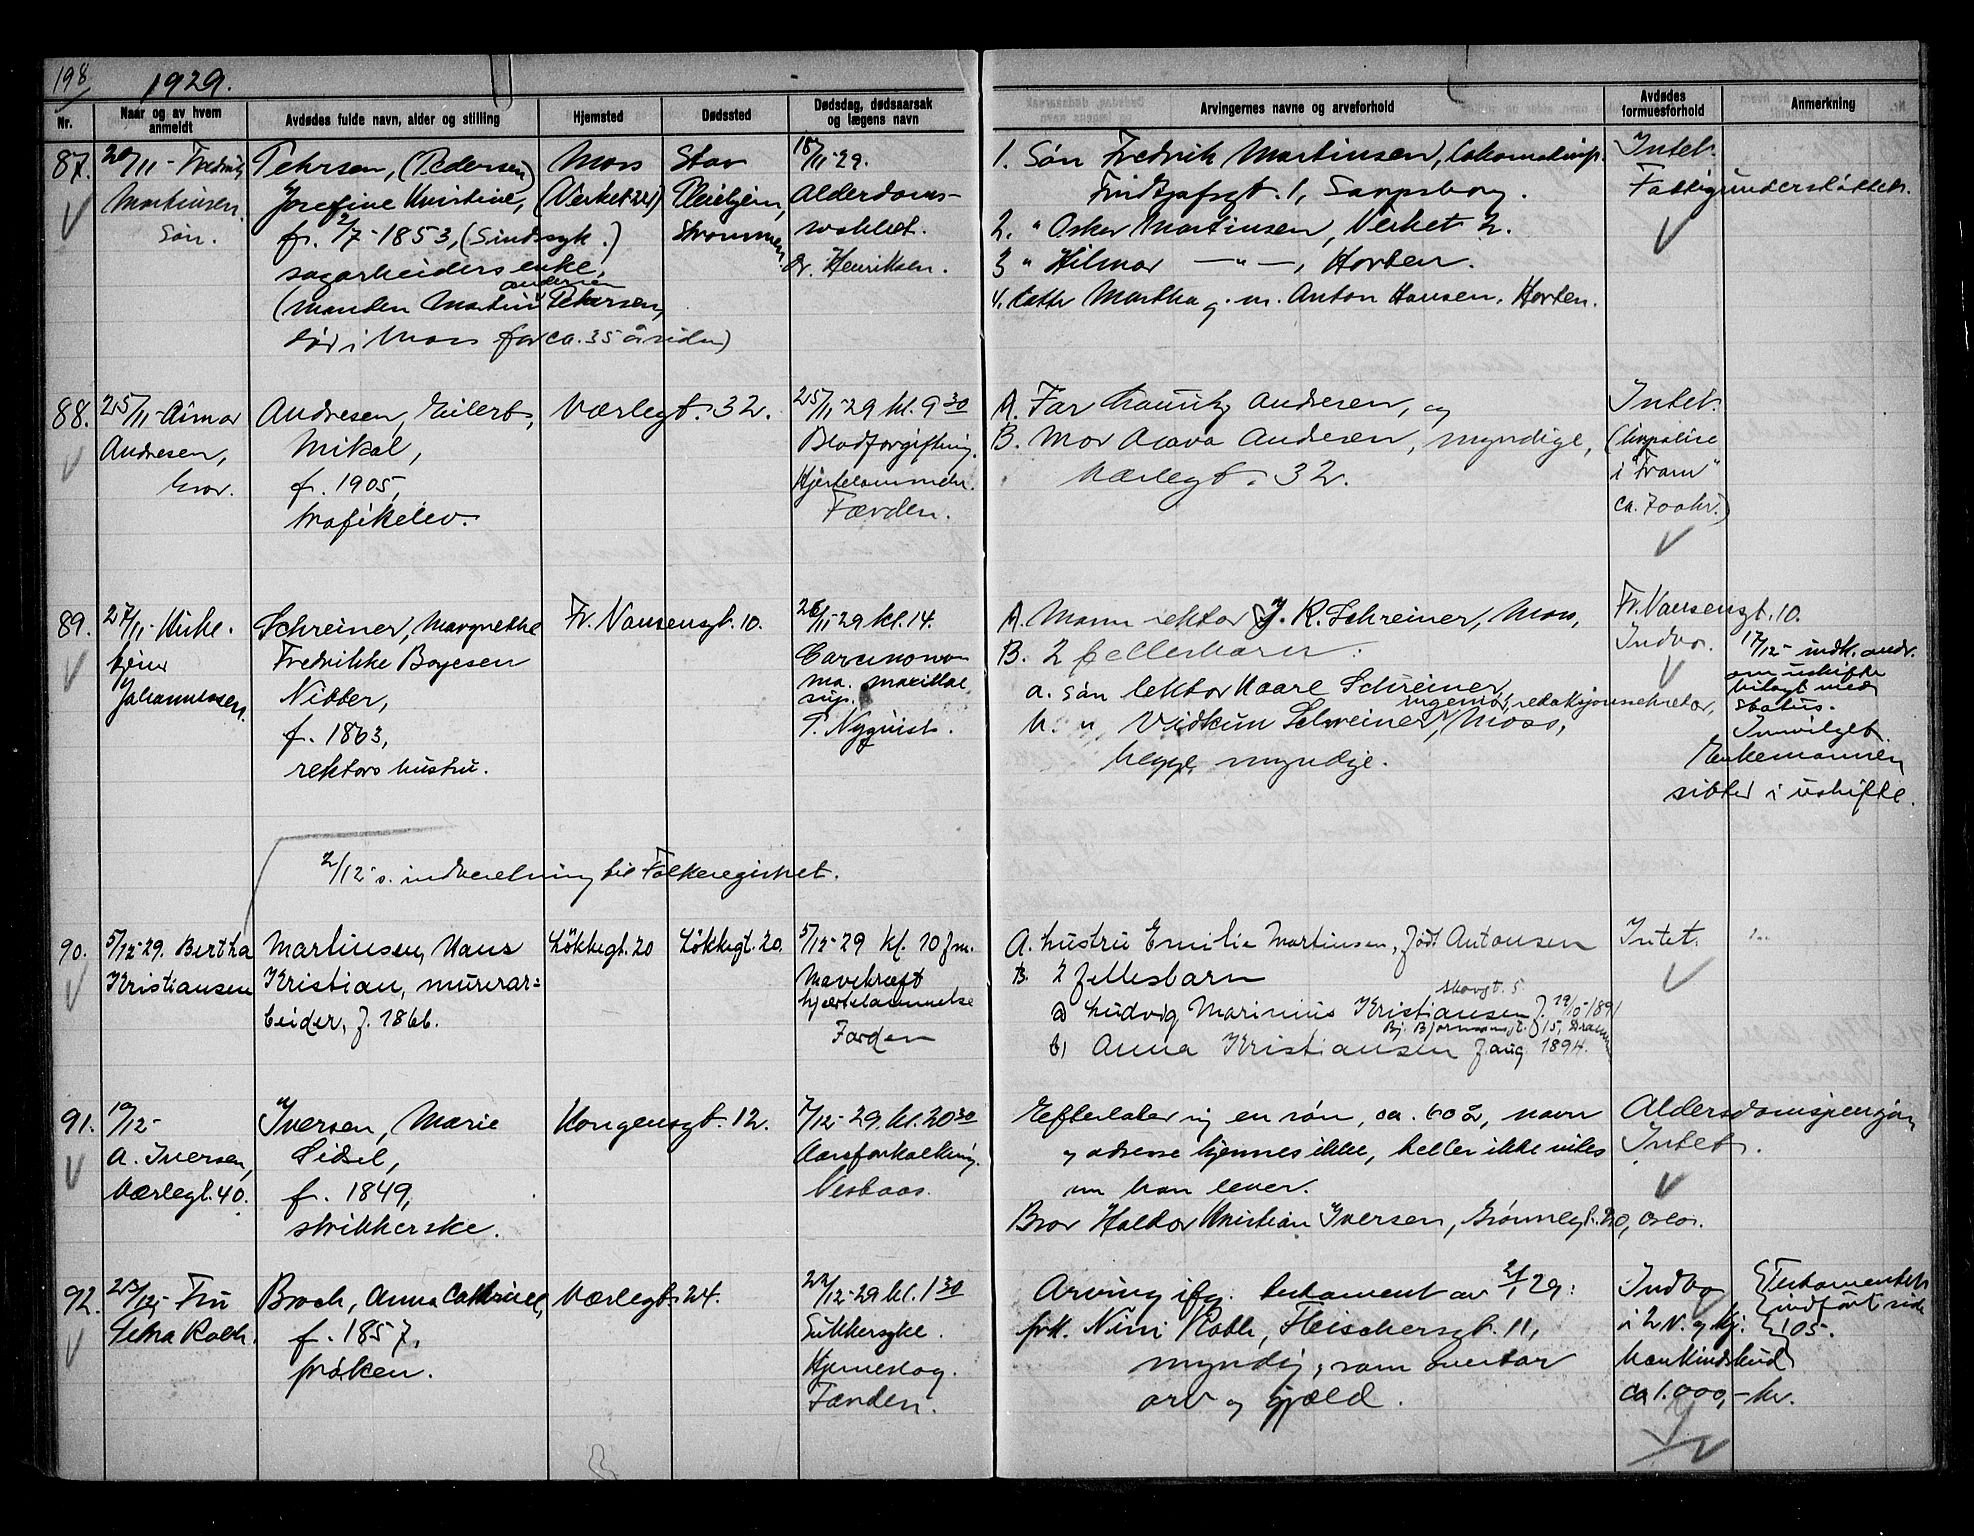 198
1929.
Nr.
Naar og av hvem anmeldt
Avdødes fulde navn, alder og stilling
Hjemsted
Dødssted
Dødsdag, dødsaarsak og lægens navn
Arvingernes navne og arveforhold
Avdødes formuesforhold
Anmerkning
87.
20/11 - Fredrik
Martinsen.
Søn.
Petersen, (Pedersen)
Josefine Kristine,
f. 2/7-1853, (Sindssyk.)
sagarbeiders enke,
(manden Martin Andersen Petersen,
død i Moss for ca. 35 år siden)
Moss
(Verket 22)
Stav
Pleiehjem,
Strømmen
18/11-29.
Alderdoms-
svakhet.
Dr. Henriksen.
1. Søn Fredrik Martinsen,
Fridtjofsgt. 1, Sarpsborg.
2. " Oskar Martinsen, Verket 2.
3 " Hilmar —"—, Horten.
4. Datter Martha g. m. Anton Hansen, Horten.
Intet.
Fattigunderstøttet.
88.
25/11 - Aimar
Andresen,
bror.
Andresen, Eilert,
Mikal,
f. 1905,
trafikelev.
Værlegt. 32.
25/11-29 kl. 9 30
Blodforgiftning.
Hjertelammelse.
Færden.
A. Far Lauritz Andresen, og
B. Mor Andresen, myndige,
Værlegt. 32.
Intet.
(Livpolise
i "Fram"
ca. 700 kr.)
89.
27/11 - Kirke-
tjener
Johannessen.
Schreiner, Margrethe
Fredrikke Boyesen
Nibber,
f. 1863,
rektors hustru.
Fr. Nansensgt. 10.
26/11-29 kl. 14.
Carcinoma
ma. maxillae
sup.
T. Nyquist.
A. Mann rektor J. K. Schreiner, Moss,
B. 2 fellesbarn:
a. søn lektor Kaare Schreiner,
ingeniør, redaksjonssekretær,
b. " Vidkun Schreiner, Moss,
begge myndige.
Fr. Nansensgt. 10.
Indbo.
17/12 - indk. andr.
om uskifte
bilagt med
status.
Innvilget.
Enkemannen
sitter i uskifte.
2/12 s. indberetning til Folkeregistret.
90.
5/12-29. Bertha
Kristiansen
Martinsen, Hans
Kristian, murerar=
beider, f. 1866.
Løkkegt. 20
Løkkegt. 20.
5/12-29 kl. 10 fm.
Mavekræft
hjertelammelse
Færden
A. hustru Emilie Martinsen, født Antonsen
B. 2 fellesbarn
Skovgt. 5
a) Ludvig Marinius Kristiansen f. 19/10-1891
Bj. Bjørnsonsgt. 15, Dramm
b) Anna Kristiansen f. aug 1894.
Intet.
91.
10/12-
A. Iversen,
Værlegt. 40.
Iversen, Marie
Sidsel,
f. 1849,
strikkerske.
Kongensgt. 12.
7/12-29 kl. 20 30
Aareforkalkning.
Nesbaas.
Efterlater sig en søn, ca. 60 år, navn
og adresse kjennes ikke, heller ikke vites
om han lever.
Bror Haldor Kristian Iversen, Grønnegt. 20, Oslo.
Aldersdomspensjon
Intet.
92.
23/12 - Fru
Petra Roth.
Broch, Anna Cathrine,
f. 1857,
frøken.
Værlegt. 24.
22/12-29 kl. 1 30
Sukkersyke.
Hjerneslag.
Færden.
Arving ifg. testament av 2/1 29:
frk. Nini Roth, Fleischersgt. 11,
myndig, som overtar
arv og gjæld.
Indbo
i 2 v. og kj.
Bankindskud
ca 1.000,- kr.
Testamentet
indført side
105.